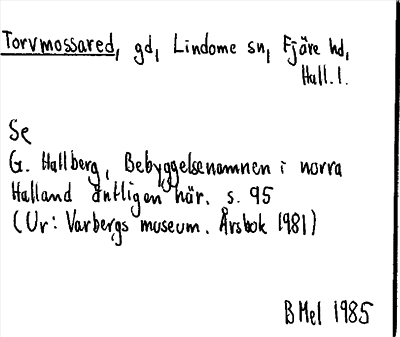 Torvmossared, gd, Lindome sn, Fjäre hd,
Hall. l.
Se
G. Hallberg, Bebyggelsenamnen i norra
Halland äntligen här. s. 95
(Ur: Varbergs museum. Årsbok 1981)
BMel 1985